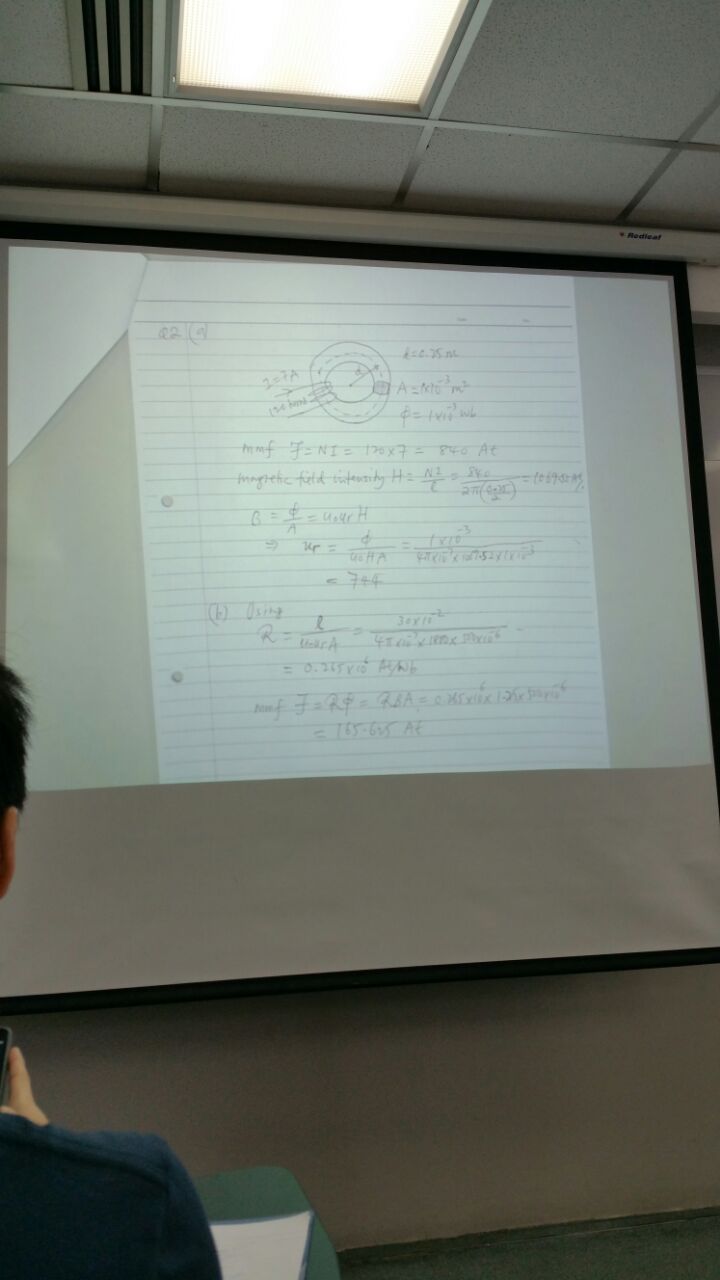 Redleaf
Q2 (a)
d=0.25m
I=7A
A=1x10⁻³m²
120 turns
d
φ=1x10⁻³Wb
mmf F=NI=120x7=840 At
magnetic field intensity H=NI/l=840/2π(0.25/2)=1069.52 At/
B=φ/A=u₀urH
⇒ ur=φ/u₀HA=1x10⁻³/4πx10⁻⁷x1069.52x1x10⁻³
=744
(b) Using
R=l/u₀urA=30x10⁻²/4πx10⁻⁷x1800x500x10⁻⁶
=0.265x10⁶ At/Wb
mmf F=Rφ=RBA=0.265x10⁶x1.25x500x10⁻⁶
=165.625 At